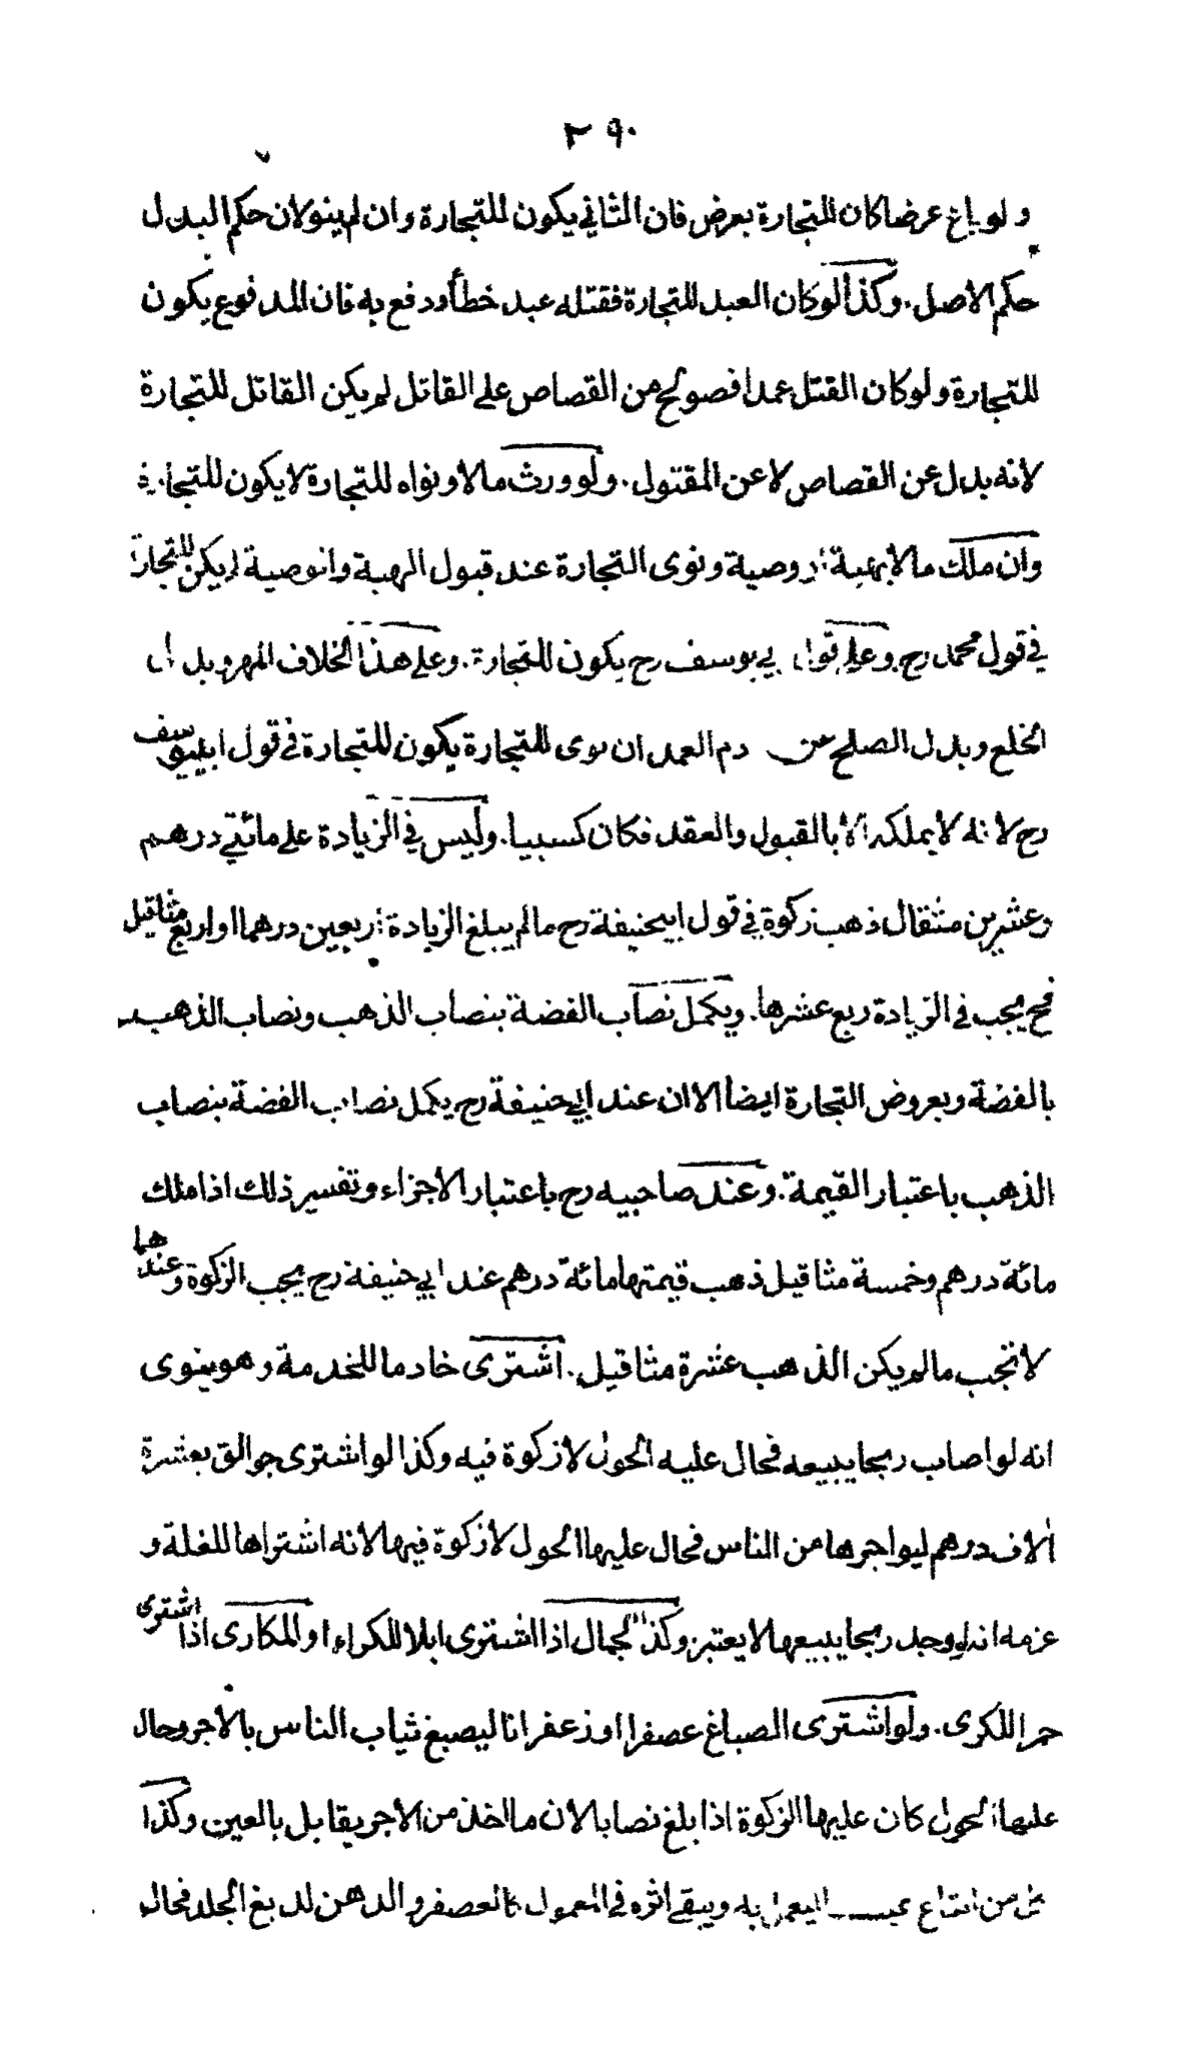 ٢٩٠
ولو باع عرضا كان للتجارة بعرض فان الثاني يكون للتجارة وان لم ينو لان حكم البدل
حكم الاصل. وكذا لو كان العبد للتجارة فقتله عبد خطأ ودفع به فان المدفوع يكون
للتجارة ولو كان القتل عمدا فصولح من القصاص على القاتل لم يكن القاتل للتجارة
لانه بدل عن القصاص لا عن المقتول. ولو ورث مالا ونواه للتجارة لا يكون للتجارة
وان ملك مالا بهبة او وصية ونوى التجارة عند قبول الهبة والوصية لم يكن للتجارة
في قول محمد رح وعلى قول ابي يوسف رح يكون للتجارة. وعلى هذا الخلاف المهر وبدل
الخلع وبدل الصلح عن دم العمد ان نوى للتجارة يكون للتجارة في قول ابييوسف
رح لانه لا يملكه الا بالقبول والعقد فكان كسبيا. وليس في الزيادة على مائتي درهم
وعشرين مثقال ذهب زكوة في قول ابيحنيفة رح مالم يبلغ الزيادة اربعين درهما او اربع مثاقيل
فح يجب في الزيادة ربع عشرها. ويكمل نصاب الفضة بنصاب الذهب ونصاب الذهب
بالفضة وبعروض التجارة ايضا الا ان عند ابي حنيفة رح يكمل نصاب الفضة بنصاب
الذهب باعتبار القيمة. وعند صاحبيه رح باعتبار الاجزاء وتفسير ذلك اذا ملك
مائة درهم وخمسة مثاقيل ذهب قيمتها مائة درهم عند ابي حنيفة رح يجب الزكوة وعندهما
لا تجب مالم يكن الذهب عشرة مثاقيل. اشترى خادما للخدمة وهو ينوى
انه لو اصاب ربحا يبيعه فحال عليه الحول لا زكوة فيه وكذا لو اشترى جوالق بعشرة
الاف درهم ليواجرها من الناس فحال عليها الحول لا زكوة فيها لانه اشتراها للغلة و
عزمه انه لو وجد ربحا يبيعها لا يعتبر وكذا الجمال اذا اشترى ابلا للكراء او المكارى اذا اشترى
حمرا للكرى. ولو اشترى الصباغ عصفرا او زعفرانا ليصبغ ثياب الناس بالاجر وحال
عليها الحول كان عليها الزكوة اذا بلغ نصابا لان ما اخذ من الاجر يقابل بالعين وكذا
من ابتاع ليعمل به ويبقى اثره في المعمول كالعصفر والدهن لدبغ الجلد فحال